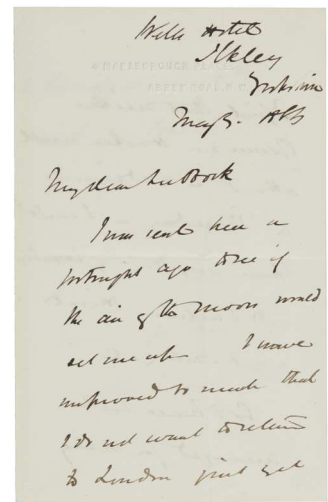 Wells Hotel
Ilkley
Yorkshire
May 3. 1886
My dear Lubbock
I was sent here a
fortnight ago to see if
the air of the moors would
set me up I have
improved so much that
I do not want to return
to London just yet